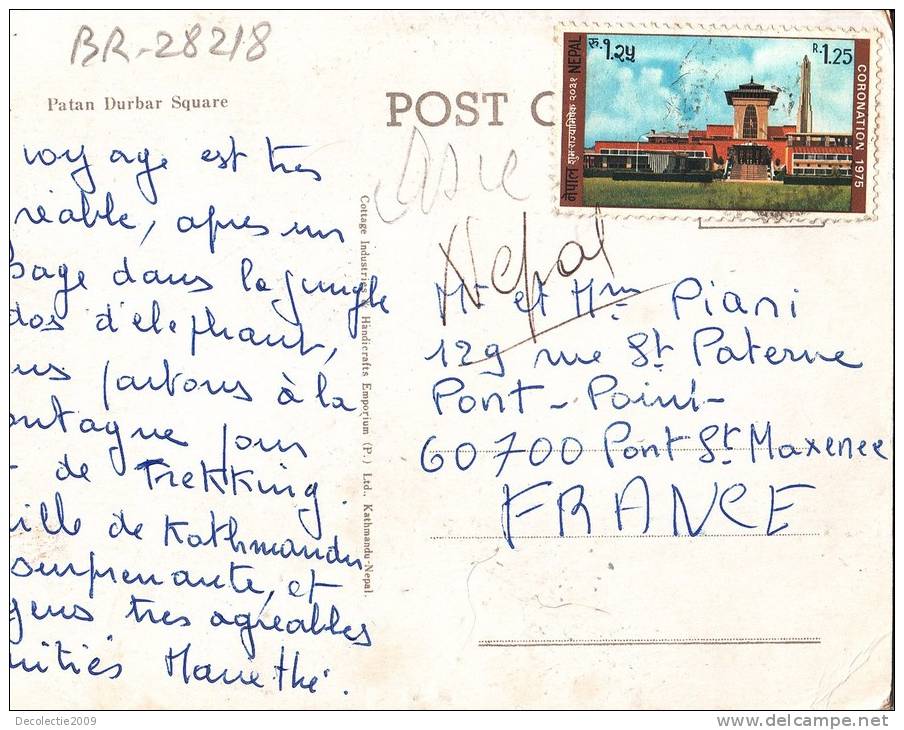 BR-28218
Patan Durbar Square
POST C
रु. १.२५
NEPAL
R. 1.25
नेपाल शुभ-राज्याभिषेक २०३१
CORONATION 1975
Asie
Nepal
voyage est très
réable, apres un
sage dans la jungle
dos d'elephant,
us partons à la
ontagne pour
de Trekking.
ille de Kathmandu
surprenante, et
gens tres agréables
mitiés
Cottage Industries & Handicrafts Emporium (P.) Ltd., Kathmandu-Nepal.
Mr et Mme Piani
129 rue St Paterne
Pont-Point
60700 Pont St Maxence
FRANCE
Decolectie2009
www.delcampe.net